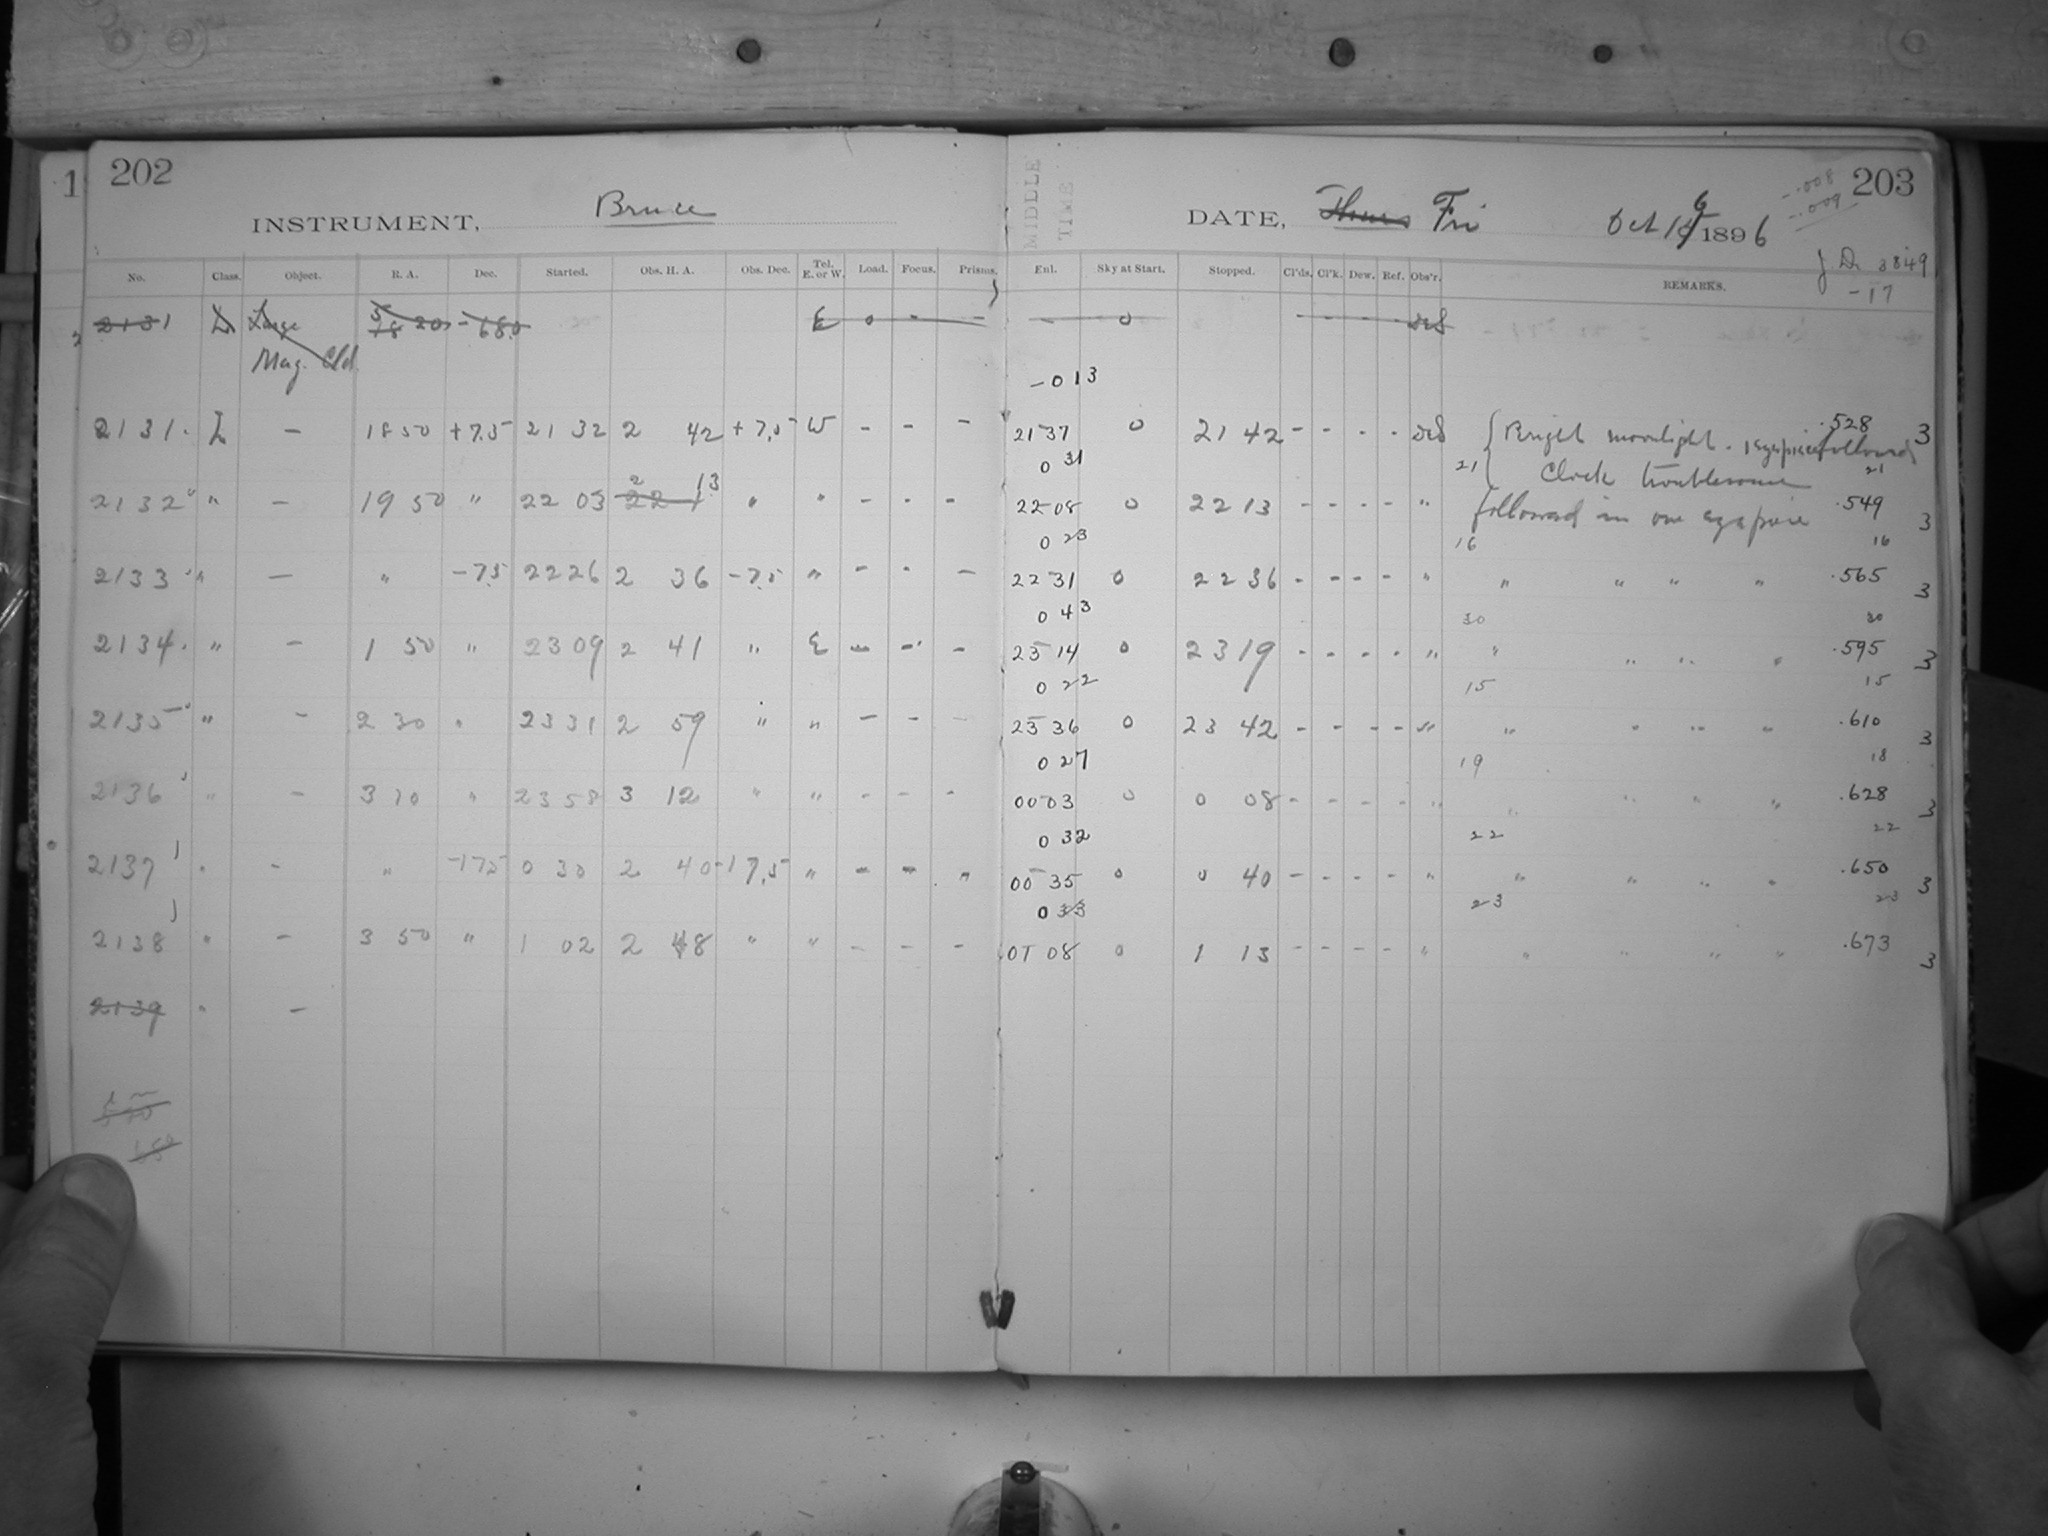 1 202
INSTRUMENT, Bruce
MIDDLE TIME
DATE, Thurs Fri Oct 16 1896
203
-.008
-.009
J.D. 3849
-17
No. Class. Object. R. A. Dec. Started. Obs. H. A. Obs. Dec. Tel. E. or W. Load. Focus. Prisms. Enl. Sky at Start. Stopped. Cl'ds. Cl'k. Dew. Ref. Obs'r. REMARKS.
2131 L Large 5 18 20 -68.0 E 0 - - - 0 - - - -
Mag. Cld.
-0 13
2131 L - 18 50 +7.5 21 32 2 42 +7.5 W - - - 21 37 0 21 42 - - - - Bright moonlight. 1 eyepiece followed .528 3
0 31 21 Clock troublesome 21
2132 " - 19 50 " 22 03 22 13 2 13 " " - - - 22 08 0 22 13 - - - - " followed in one eyepiece .549 3
0 23 16 16
2133 " - " -7.5 22 26 2 36 -7.5 " - - - 22 31 0 22 36 - - - - " " " " " .565 3
0 43 30 30
2134 " - 1 50 " 23 09 2 41 " E - - - 23 14 0 23 19 - - - - " " " " " .595 3
0 22 15 15
2135 " - 2 30 " 23 31 2 59 " " - - - 23 36 0 23 42 - - - - " " " " " .610 3
0 27 19 18
2136 " - 3 10 " 23 58 3 12 " " - - - 00 03 0 0 08 - - - - " " " " " .628 3
0 32 22 22
2137 " - " -17.5 0 30 2 40 -17.5 " - - " 00 35 0 0 40 - - - - " " " " " .650 3
0 33 23 23
2138 " - 3 50 " 1 02 2 48 " " - - - 01 08 0 1 13 - - - - " " " " " .673 3
2139 " -